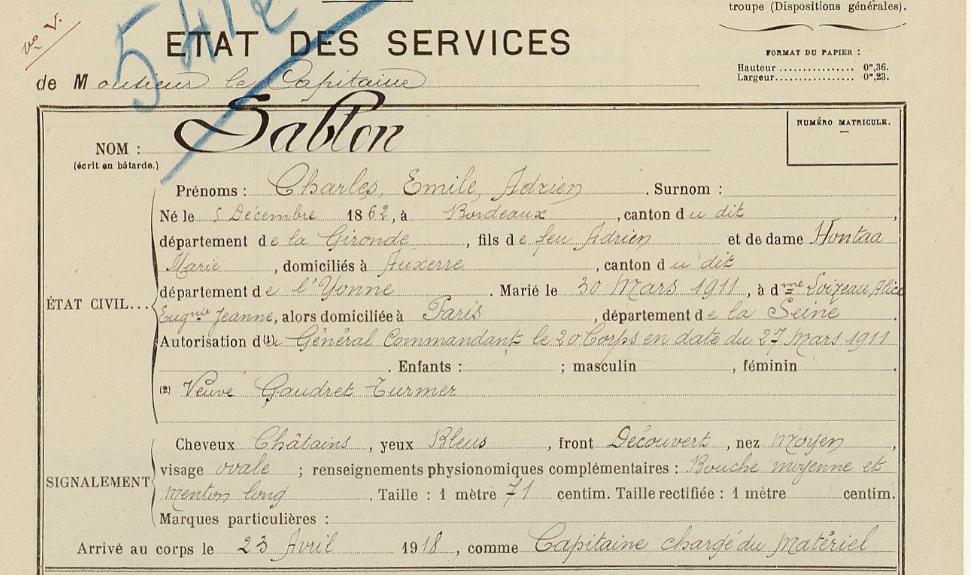 troupe (Dispositions générales).
n° V.
5412
ETAT DES SERVICES
FORMAT DU PAPIER :
Hauteur ............... 0ᵐ,36.
Largeur ............... 0ᵐ,23.
de Monsieur le Capitaine
NUMÉRO MATRICULE.
NOM : Sablon
(écrit en bâtarde.)
Prénoms : Charles, Emile, Adrien . Surnom :
Né le 5 Décembre 1862, à Bordeaux , canton du dit ,
département de la Gironde , fils de feu Adrien et de dame Hontaa
Marie , domiciliés à Auxerre , canton du dit
département de l'Yonne . Marié le 30 Mars 1911, à dᵐᵉ Loizeau, Alice
ÉTAT CIVIL...
Eugⁿⁱᵉ Jeanne, alors domiciliée à Paris , département de la Seine
Autorisation d(1)u Général Commandant le 20 Corps en date du 27 Mars 1911
. Enfants : ; masculin , féminin .
(2) Veuve Gaudret Turmer
Cheveux Châtains , yeux Bleus , front Découvert , nez Moyen ,
visage ovale ; renseignements physionomiques complémentaires : Bouche moyenne et
SIGNALEMENT
menton long . Taille : 1 mètre 71 centim. Taille rectifiée : 1 mètre centim.
Marques particulières :
Arrivé au corps le 23 Avril 1918 , comme Capitaine chargé du matériel